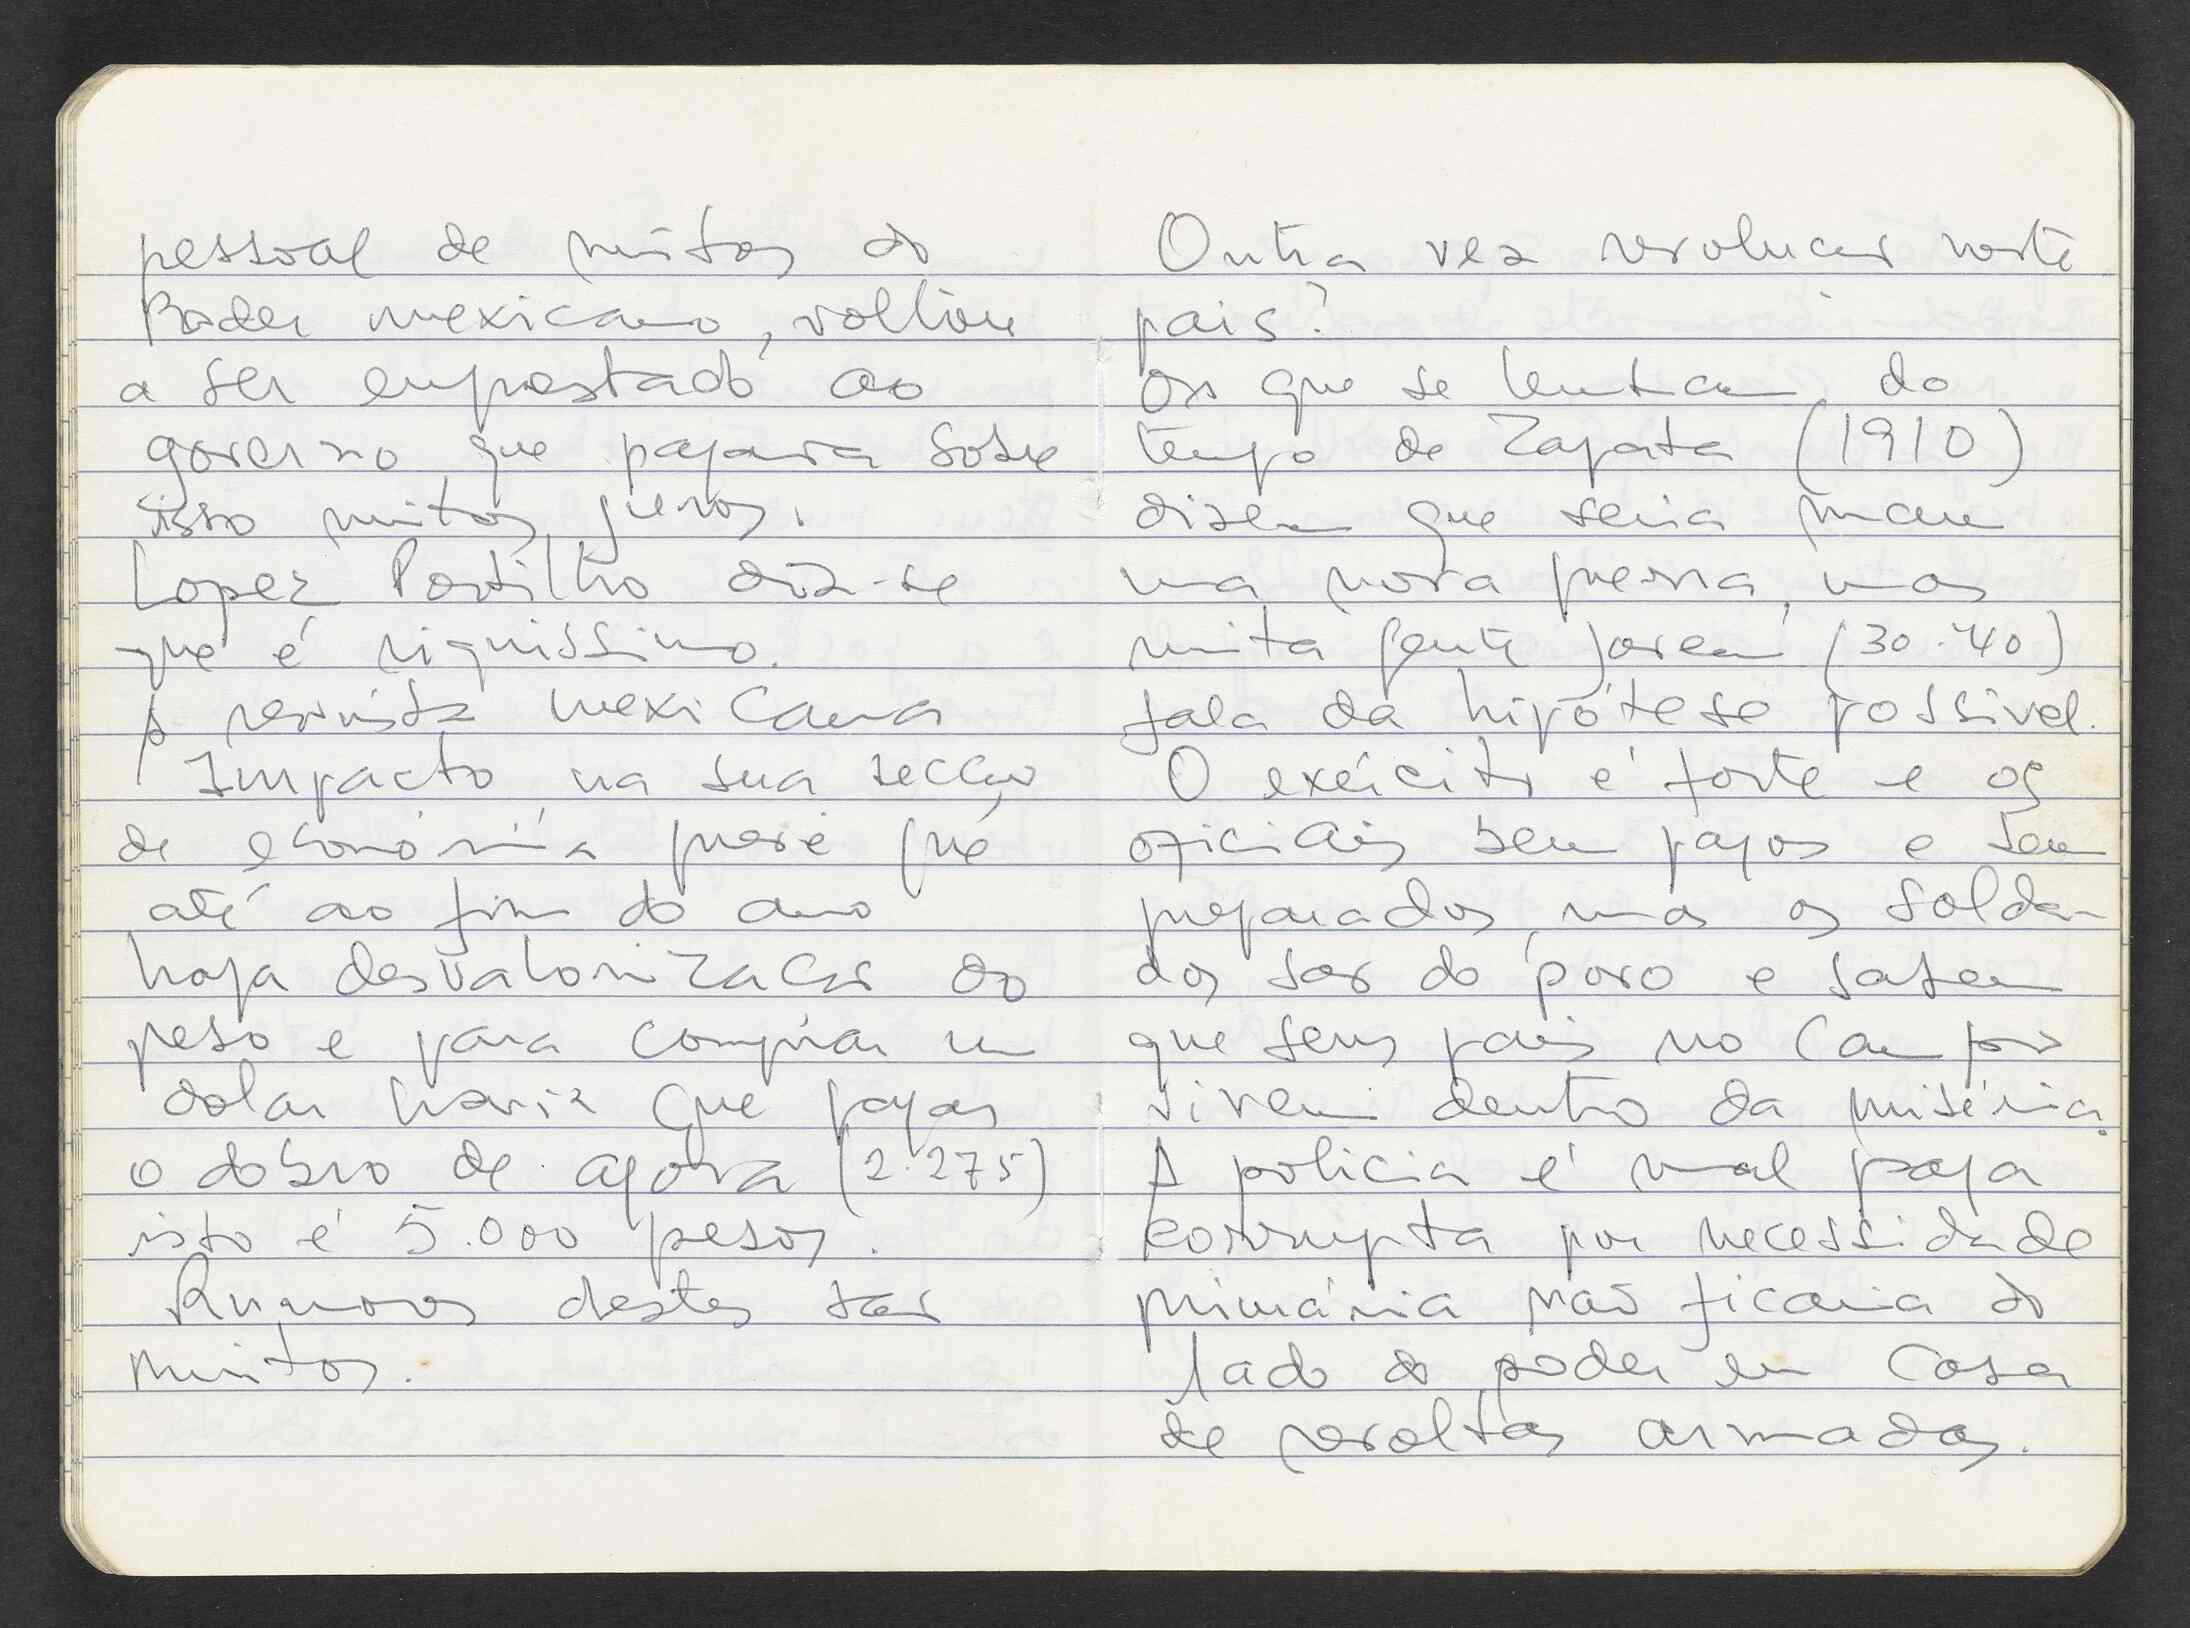 pessoal de muitos do
Poder mexicano, voltou
a ser emprestado ao
governo que pagava sobre
isso muitos juros.
Lopez Portilho diz-se
que é riquissimo.
A revista mexicana
Impacto na sua secção
de económia prevé que
até ao fim do ano
haja desvalorização do
peso e para comprar um
dolar havia que pagar
o dobro de agora (2.275)
isto é 5.000 pesos.
Rumores destes são
muitos.
Outra vez revolução neste
pais?
Os que se lembram do
tempo de Zapata (1910)
dizem que seria mau
uma nova guerra, mas
muita gente jovem (30-40)
fala da hipótese possivel.
O exército é forte e os
oficiais bem pagos e bem
preparados, mas os solda-
dos são do povo e sabem
que seus pais no campo
vivem dentro da miséria.
A policia é mal paga
corrupta por necessidade
primária não ficaria do
lado do poder em caso
de revoltas armadas.